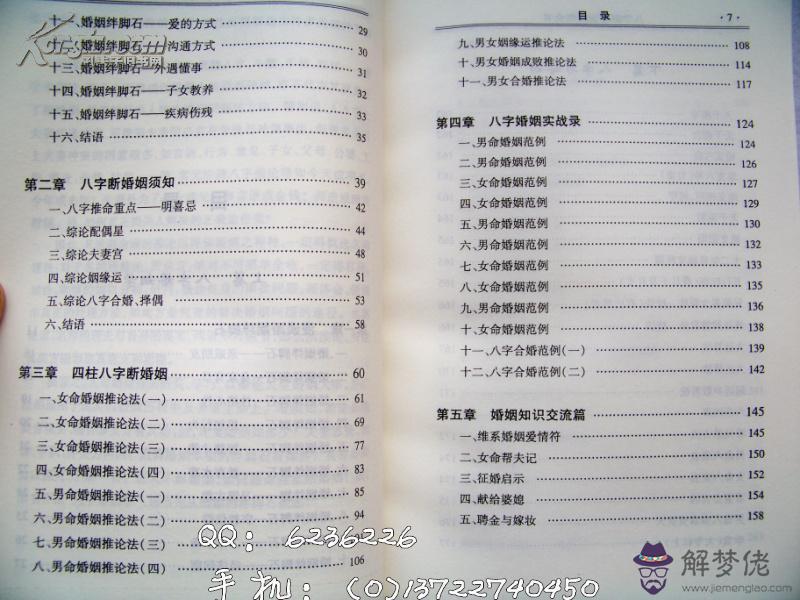 十一、婚姻绊脚石——爱的方式 29
十二、婚姻绊脚石——沟通方式 30
十三、婚姻绊脚石—外遇懂事 31
十四、婚姻绊脚石——子女教养 32
十五、婚姻绊脚石——疾病伤残 33
十六、结语 35
第二章 八字断婚姻须知 39
一、八字推命重点—明喜忌 42
二、综论配偶星 44
三、综论夫妻宫 48
四、综论姻缘运 51
五、综论八字合婚、择偶 53
六、结语 58
第三章 四柱八字断婚姻 60
一、女命婚姻推论法(一) 61
二、女命婚姻推论法(二) 69
三、女命婚姻推论法(三) 77
四、女命婚姻推论法(四) 83
五、男命婚姻推论法(一) 85
六、男命婚姻推论法(二) 94
七、男命婚姻推论法(三) 100
八、男命婚姻推论法(四) 106
目录 ·7·
九、男女姻缘运推论法 108
十、男女婚姻成败推论法 114
十一、男女合婚推论法 117
第四章 八字婚姻实战录 124
一、男命婚姻范例 124
二、男命婚姻范例 126
三、女命婚姻范例 127
四、女命婚姻范例 129
五、男命婚姻范例 130
六、男命婚姻范例 132
七、女命婚姻范例 133
八、女命婚姻范例 135
九、男命婚姻范例 136
十、女命婚姻范例 138
十一、八字合婚范例(一) 139
十二、八字合婚范例(二) 142
第五章 婚姻知识交流篇 145
一、维系婚姻爱情符 145
二、女命帮夫记 150
三、征婚启示 152
四、献给婆媳 154
五、聘金与嫁妆 158
QQ: 6236226
手机: (0)13722740450
解梦佬
www.jiemenglao.com